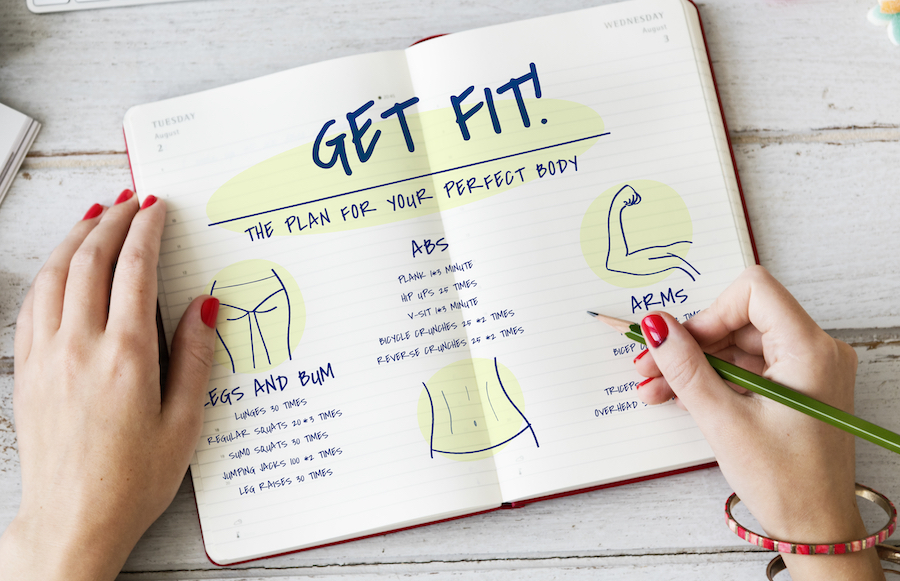 TUESDAY
August
2
WEDNESDAY
August
3
GET FIT!
THE PLAN FOR YOUR PERFECT BODY
LEGS AND BUM
LUNGES 30 TIMES
REGULAR SQUATS 20 *3 TIMES
SUMO SQUATS 30 TIMES
JUMPING JACKS 100 *2 TIMES
LEG RAISES 30 TIMES
ABS
PLANK 1*3 MINUTE
HIP UPS 25 TIMES
V-SIT 1*3 MINUTE
BICYCLE CRUNCHES 25 *2 TIMES
REVERSE CRUNCHES 25 *2 TIMES
ARMS
BICEP
TRICEPS
OVERHEAD